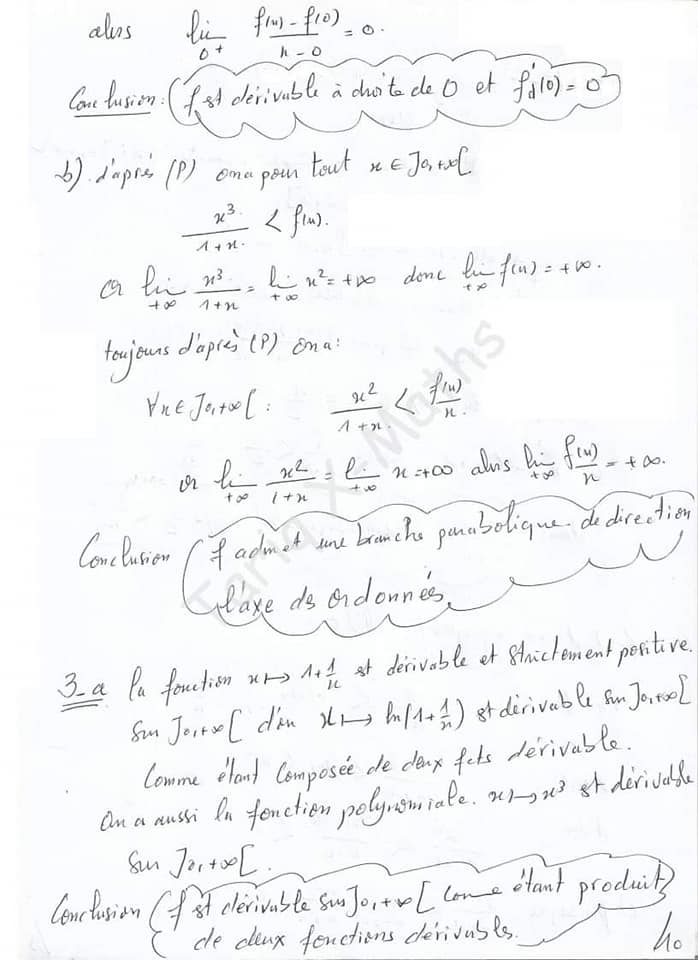 alors lim_{0+} (f(x) - f(0))/(x - 0) = 0.
Conclusion : f est dérivable à droite de 0 et f'd(0) = 0
b) d'après (P) on a pour tout x ∈ ]0,+∞[
x³/(1+x) < f(x).
or lim_{+∞} x³/(1+x) = lim_{+∞} x² = +∞ donc lim_{+∞} f(x) = +∞.
toujours d'après (P) on a :
∀x ∈ ]0,+∞[ : x²/(1+x) < f(x)/x
or lim_{+∞} x²/(1+x) = lim_{+∞} x = +∞ alors lim_{+∞} f(x)/x = +∞.
Conclusion f admet une branche parabolique de direction
l'axe des ordonnés
3-a la fonction x ↦ 1+1/x est dérivable et strictement positive.
sur ]0,+∞[ d'où x ↦ ln(1+1/x) est dérivable sur ]0,+∞[
Comme étant composée de deux fcts dérivable.
On a aussi la fonction polynomiale. x ↦ x³ est dérivable
sur ]0,+∞[.
Conclusion f est dérivable sur ]0,+∞[ come étant produit
de deux fonctions dérivables.
10
Tariq X-Maths